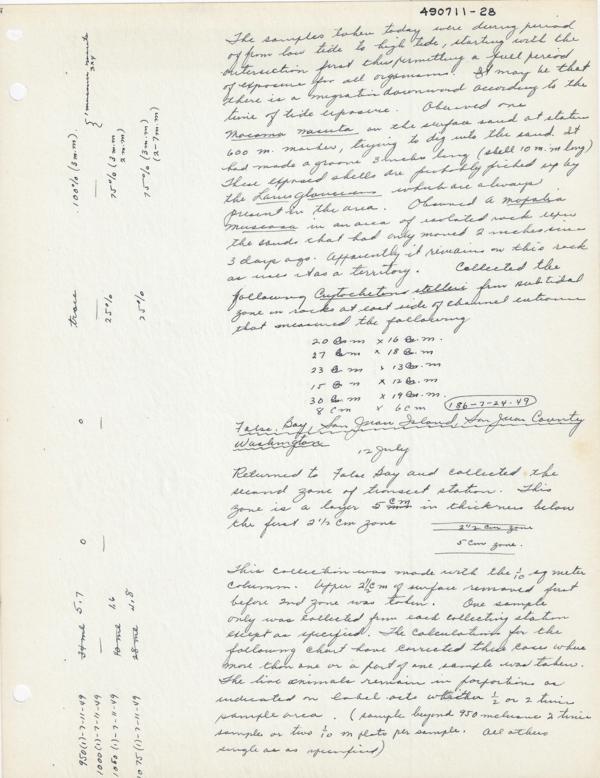 490711-28
The samples taken today were during period
of from low tide to high tide, starting with the
intersection first thus permitting a full period
of exposure for all organisms. It may be that
there is a migration downward according to the
time of tide exposure. Observed one
Macoma nasuta on the surface sand at station
600 m. marker, trying to dig into the sand. It
had made a groove 3 inches long (shell 10 m.m long)
These exposed shells are probably picked up by
the Larus glaucescens which are always
present in the area. Observed a Mopalia
muscosa in an area of isolated rock upon
the sands that had only moved 2 inches since
3 days ago. Apparently it remains on this rock
as uses it as a territory. Collected the
following Cryptochiton stelleri from subtidal
zone in rocks at east side of channel entrance
that measured the following
20 cm x 16 cm.
27 cm x 18 cm
23 cm x 13 cm
15 cm x 12 cm
30 cm x 19 cm.
8 cm x 6 cm
186-7-24-49
False Bay, San Juan Island, San Juan County
Washington
12 July
Returned to False Bay and collected the
second zone of transect station. This
zone is a layer 5 cm in thickness below
the first 2½ cm zone
2½ cm zone
5 cm zone.
This collection was made with the 1/10 sq meter
column. Upper 2½ cm of surface removed first
before 2nd zone was taken. One sample
only was collected from each collecting station
except as specified. The calculations for the
following chart have corrected these cases where
more than one or a part of one sample was taken.
The live animals remain in proportions as
indicated on label acts whether ½ or 2 times
sample area. (sample beyond 950 inclusive 2 times
samples or two 1/10 m plots per sample. All others
single as as specified)
950(1)-7-11-49 34 ml 5.7 0 0 trace 100% (3 m.m)
1000(1)-7-11-49 — — — — —
1050(1)-7-11-49 10 ml 1.6 25% 75% (3 m.m 2 m.m)
1075(1)-7-11-49 28 ml 4.8 25% 75% (3 m.m) (2-7 m.m)